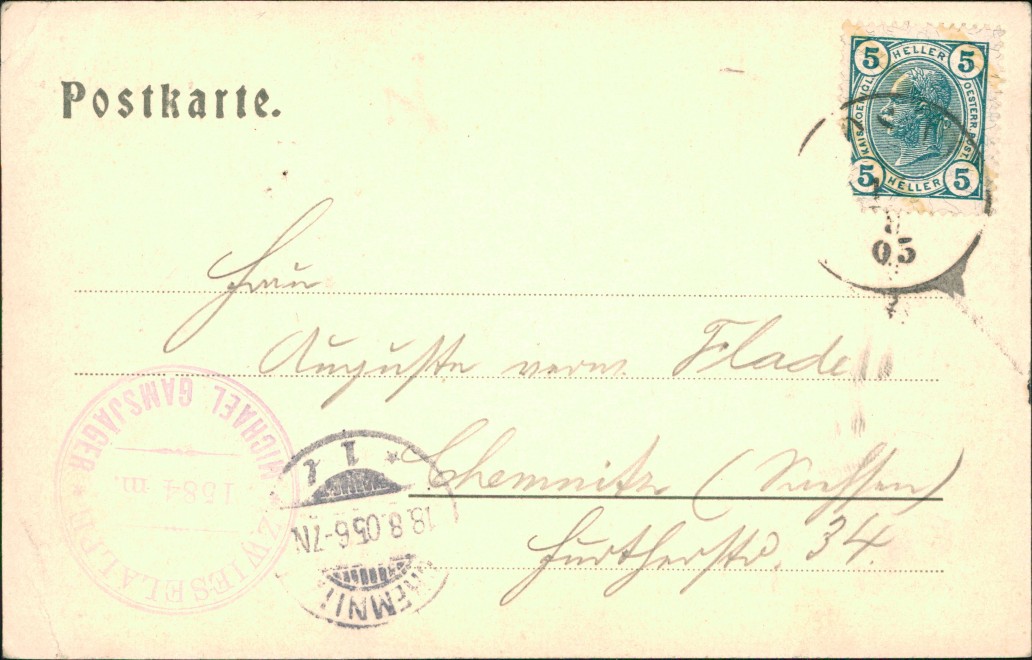 Postkarte.
5 HELLER 5
KAIS. KOENIGL. OESTERR. POST.
5 HELLER 5
05
Frau
Auguste verw. Flade
Chemnitz (Sachsen)
Fürtherstr. 34.
MICHAEL GAMSJÄGER
1584 m.
* ZWIESELALPE *
* 1
18.8.05.6-7N
CHEMNI